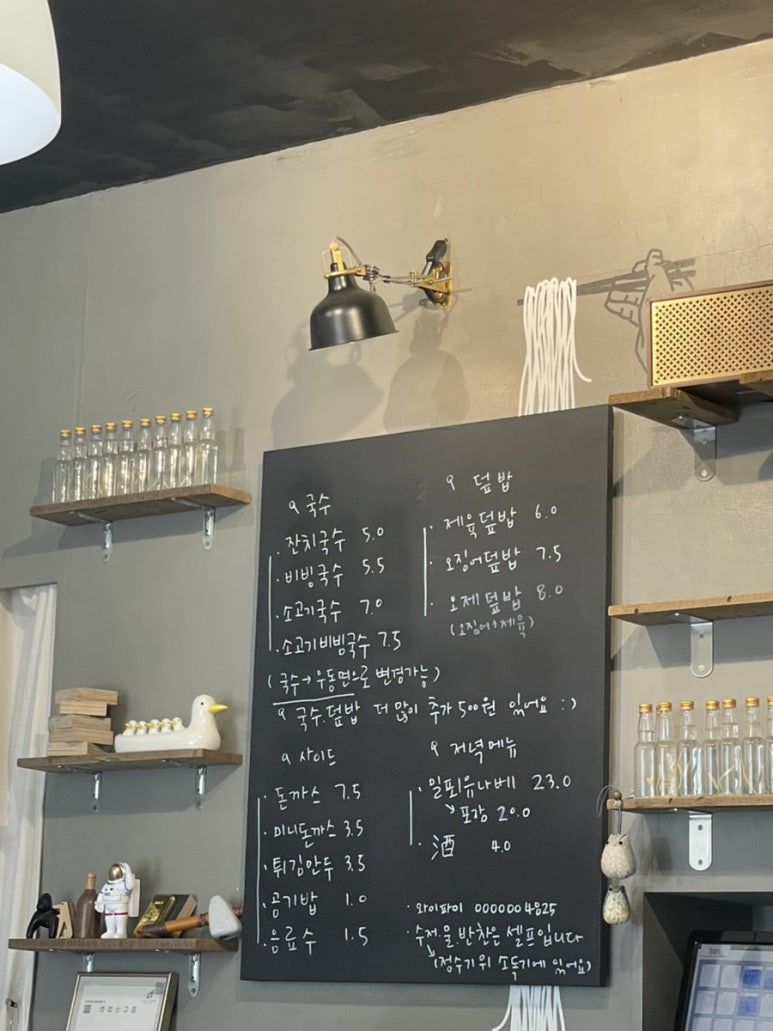 국수
· 잔치국수 5.0
· 비빔국수 5.5
· 소고기국수 7.0
· 소고기비빔국수 7.5
(국수→우동면으로 변경가능)
덮밥
· 제육덮밥 6.0
· 오징어덮밥 7.5
· 오제덮밥 8.0
(오징어+제육)
국수.덮밥 더 많이 추가 500원 있어요 :)
사이드
· 돈까스 7.5
· 미니돈까스 3.5
· 튀김만두 3.5
· 공기밥 1.0
· 음료수 1.5
저녁메뉴
· 밀푀유나베 23.0
↘ 포장 20.0
· 酒 4.0
· 와이파이 0000004825
· 수저,물,반찬은 셀프입니다
(정수기위 소독기에 있어요)
영업신고증